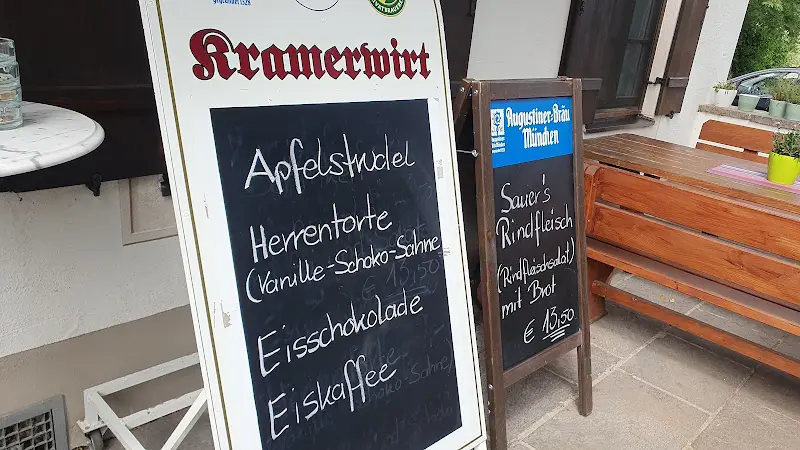 gegründet 1328
Kramerwirt
Apfelstrudel
Herrentorte
(Vanille-Schoko-Sahne
Eisschokolade
Eiskaffee
Augustiner-Bräu
München
Sauer's
Rindfleisch
(Rindfleischsalat)
mit Brot
€ 13,50